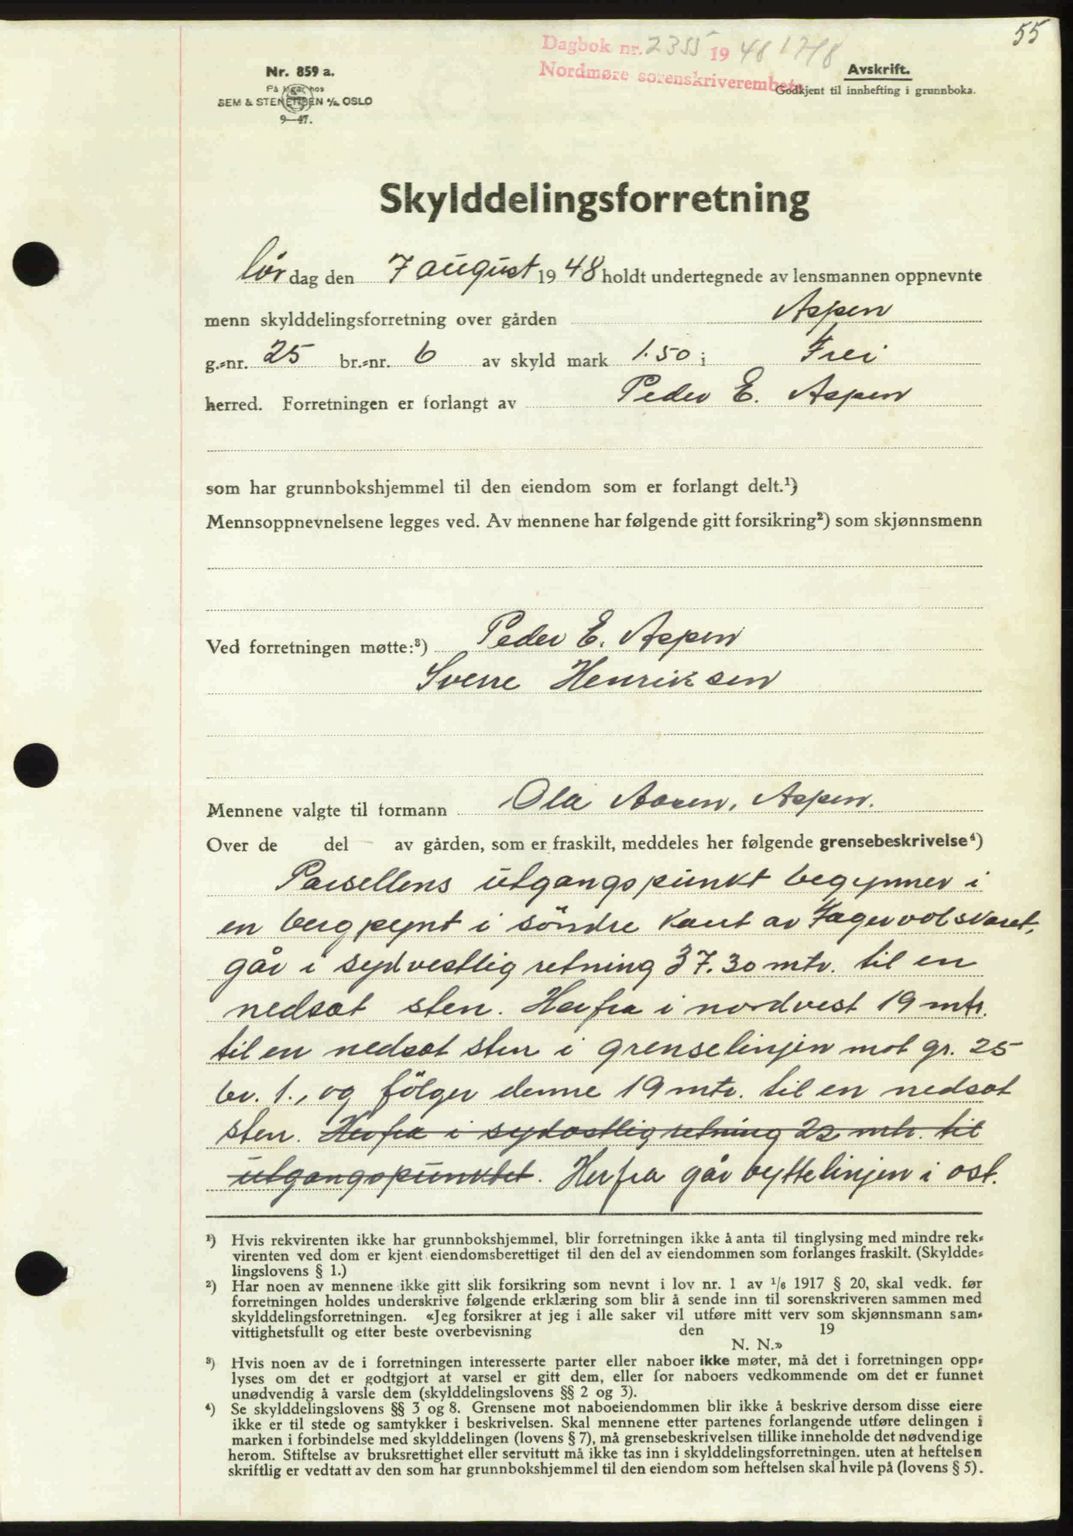 55
Dagbok nr. 2355 1948 17/8
Nordmøre sorenskriverembete
Nr. 859 a.
På lager hos
SEM & STENERSEN A/S, OSLO
9—47.
Avskrift.
Godkjent til innhefting i grunnboka.
Skylddelingsforretning
lør dag den 7 august 1948 holdt undertegnede av lensmannen oppnevnte
menn skylddelingsforretning over gården Aspen
g.-nr. 25 br.-nr. 6 av skyld mark 1.50 i Frei
herred. Forretningen er forlangt av Peder E. Aspen
som har grunnbokshjemmel til den eiendom som er forlangt delt.¹)
Mennsoppnevnelsene legges ved. Av mennene har følgende gitt forsikring²) som skjønnsmenn
Ved forretningen møtte:³) Peder E. Aspen
Sverre Henriksen
Mennene valgte til formann Ola Aasen, Aspen.
Over de del av gården, som er fraskilt, meddeles her følgende grensebeskrivelse⁴)
Parsellens utgangspunkt begynner i
en bergpynt i söndre kant av Fagervolsvaret,
går i sydvestlig retning 37.30 mtr. til en
nedsat sten. Herfra i nordvest 19 mtr.
til en nedsat sten i grenselinjen mot gr. 25
br. 1., og fölger denne 19 mtr. til en nedsat
sten. Herfra i sydostlig retning 22 mtr. til
utgangspunktet. Herfra går byttelinjen i ost.
¹) Hvis rekvirenten ikke har grunnbokshjemmel, blir forretningen ikke å anta til tinglysing med mindre rek-
virenten ved dom er kjent eiendomsberettiget til den del av eiendommen som forlanges fraskilt. (Skyldde-
lingslovens § 1.)
²) Har noen av mennene ikke gitt slik forsikring som nevnt i lov nr. 1 av 1/6 1917 § 20, skal vedk. før
forretningen holdes underskrive følgende erklæring som blir å sende inn til sorenskriveren sammen med
skylddelingsforretningen. «Jeg forsikrer at jeg i alle saker vil utføre mitt verv som skjønnsmann sam-
vittighetsfullt og etter beste overbevisning den 19
N. N.»
³) Hvis noen av de i forretningen interesserte parter eller naboer ikke møter, må det i forretningen opp-
lyses om det er godtgjort at varsel er gitt dem, eller for naboers vedkommende om det er funnet
unødvendig å varsle dem (skylddelingslovens §§ 2 og 3).
⁴) Se skylddelingslovens §§ 3 og 8. Grensene mot naboeiendommen blir ikke å beskrive dersom disse eiere
ikke er til stede og samtykker i beskrivelsen. Skal mennene etter partenes forlangende utføre delingen i
marken i forbindelse med skylddelingen (lovens § 7), må grensebeskrivelsen tillike inneholde det nødvendige
herom. Stiftelse av bruksrettighet eller servitutt må ikke tas inn i skylddelingsforretningen. uten at heftelsen
skriftlig er vedtatt av den som har grunnbokshjemmel til den eiendom som heftelsen skal hvile på (lovens § 5).